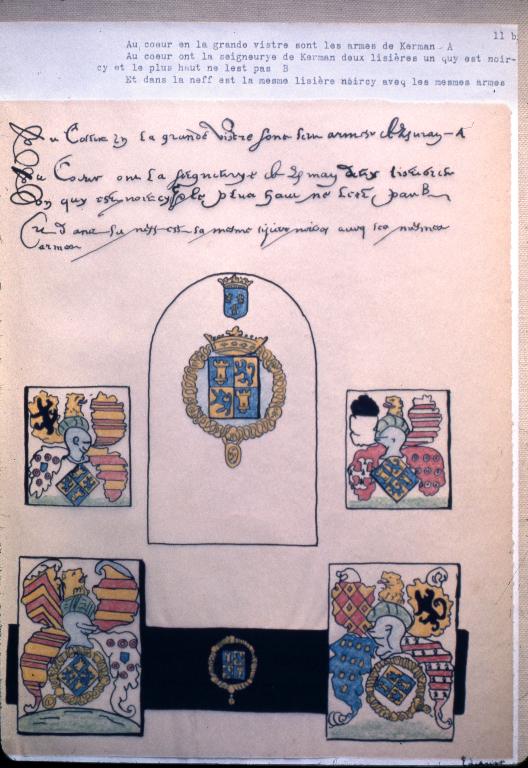 11 b
Au coeur en la grande vistre sont les armes de Kerman A
Au coeur ont la seigneurye de Kerman deux lisières un quy est noir-
cy et le plus haut ne lest pas B
Et dans la neff est la mesme lisière noircy aveq les mesmes armes
Au Coeur en la grande vistre sont les armes de Kerman - A
Au Coeur ont la seigneurye de Kerman deux lisieres
un quy est noircy et le plus haut ne lest pas B
Et dans la neff est la mesme lisiere noircy aveq les mesmes
armes